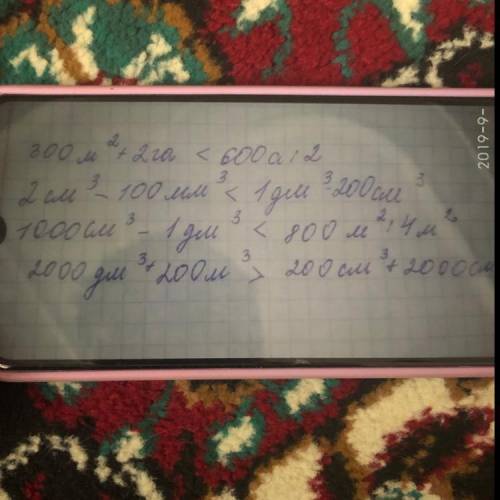 300 м² + 2 га < 600 а : 2
2 см³ - 100 мм³ < 1 дм³ - 200 см³
1000 см³ - 1 дм³ < 800 м² : 4 м²
2000 дм³ + 200 м³ > 200 см³ + 2000 см
2019-9-